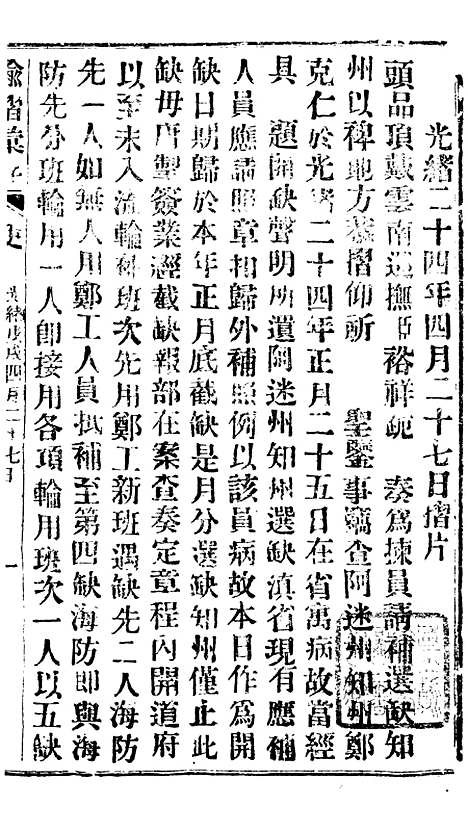 光緒二十四年四月二十七日摺片
頭品頂戴雲南巡撫臣裕祥跪　奏爲揀員請補選缺知
州以裨地方恭摺仰祈　聖鑒事竊查阿迷州知州鄭
克仁於光緒二十四年正月二十五日在省寓病故當經
具　題開缺聲明所遺阿迷州知州選缺滇省現有應補
人員應請照章扣歸外補照例以該員病故本日作爲開
缺日期歸於本年正月底截缺是月分選缺知州僅止此
缺毋庸掣簽業經截缺報部在案查奏定章程內開道府
以至未入流輪補班次先用鄭工新班遇缺先二人海防
先一人如無人用鄭工人員抵補至第四缺海防即與海
防先分班輪用一人即接用各項輪用班次一人以五缺
諭摺彙存　史　光緒戊戌四月二十七日　一